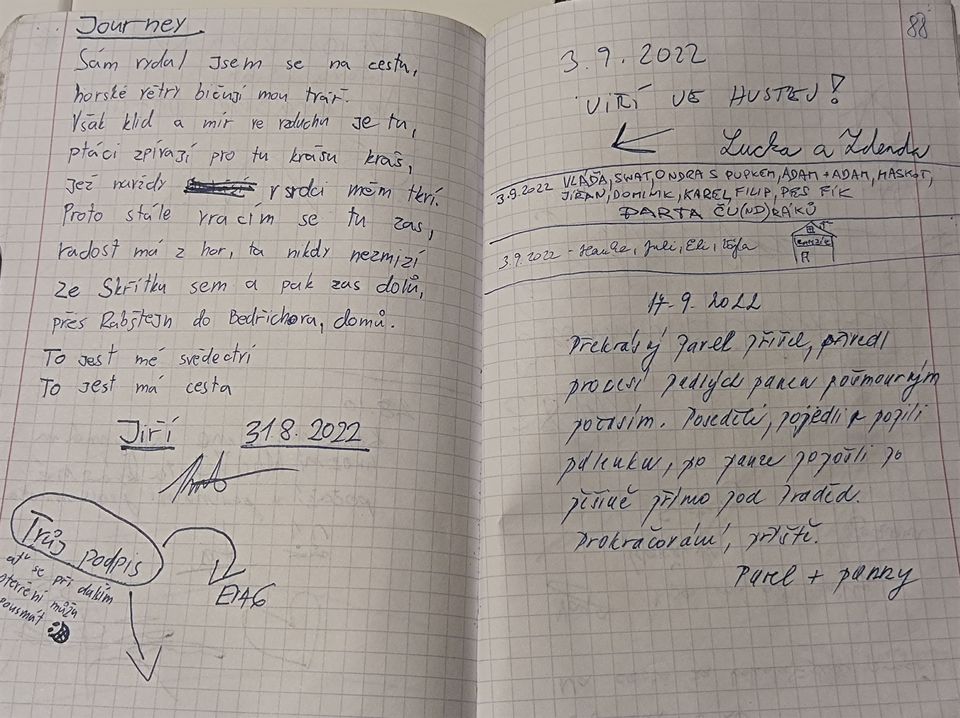 Journey
Sám vydal jsem se na cestu,
horské větry bičují mou tvář.
Však klid a mír ve vzduchu je tu,
ptáci zpívají pro tu krásu krás,
jež navždy v srdci mém tkví.
Proto stále vracím se tu zas,
radost má z hor, ta nikdy nezmizí
Ze Skřítku sem a pak zas dolů,
přes Rabštejn do Bedřichova, domů.
To jest mé svědectví
To jest má cesta
Jiří 31.8. 2022
Tvůj podpis
ať se při dalším
otevření můžu
pousmát
88
3.9.2022
VÍŘÍ VE HUSTEJ!
Lucka a Zdenda
3.9.2022 VLÁĎA, SWAT, ONDRA S PUPKEM, ADAM + ADAM, MASKOT,
JIRAN, DOMINIK, KAREL, FILIP, PES FÍK
PARTA ČU(ND)RÁKŮ
3.9.2022 - Hanka, Juli, Eli,
17.9.2022
Překrásný Pavel přišel, přivedl
procesí panen pošmourným
počasím. Poseděli, pojedli, popili
pálenku, po pauze popošli po
pěšině přímo pod Praděd.
Pokračování, příště.
Pavel + panny